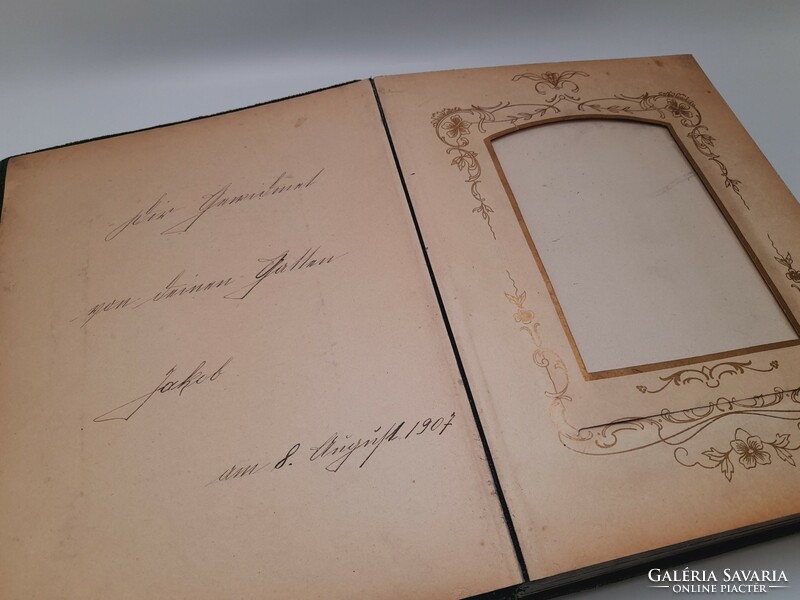 Dir Gewidmet
von deinen Gatten
Jakob
am 8. August. 1907
GALÉRIA SAVARIA
ONLINE PIACTÉR